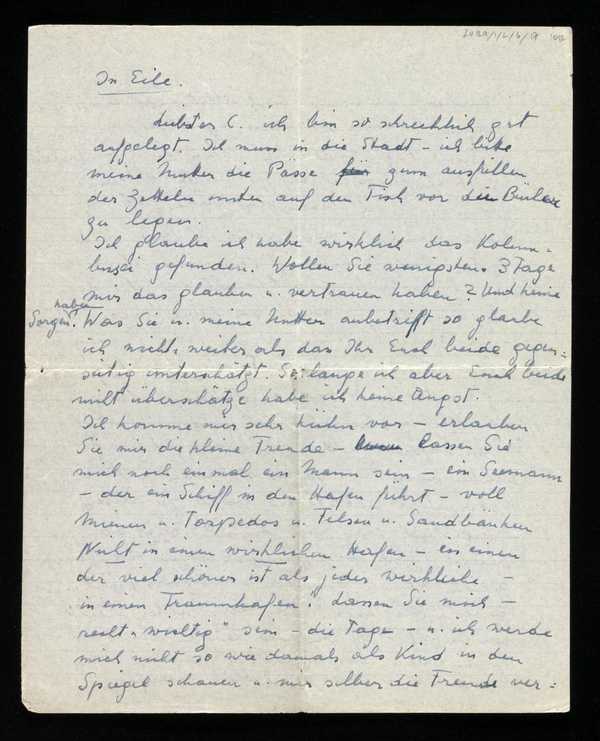 In Eile.
Liebster C. ich bin so schrecklich gut
aufgelegt. Ich muss in die Stadt – ich bitte
meine Mutter die Pässe für zum ausfüllen
der Zetteln unten auf den Tisch vor die Bücher
zu legen.
Ich glaube ich habe wirklich das Kolum-
busei gefunden. Wollen Sie wenigstens 3 Tage
mir das glauben u. vertrauen haben? Und keine
Sorgen haben. Was Sie u. meine Mutter anbetrifft so glaube
ich nichts weiter als dass Ihr Euch beide gegen=
seitig unterschätzt. Solange ich aber Euch beide
nicht überschätze habe ich keine Angst.
Ich komme mir sehr kühn vor – erlauben
Sie mir die kleine Freude – lassen Sie
mich noch einmal ein Mann sein – ein Seemann
– der ein Schiff in den Hafen führt – voll
Minen u. Torpedos u. Felsen u. Sandbänken
Nicht in einen wirklichen Hafen – in einen
der viel schöner ist als jeder wirkliche –
in einen Traumhafen! Lassen Sie mich –
recht „wichtig" sein – die Tage – u. ich werde
mich nicht so wie damals als Kind in den
Spiegel schauen u. mir selber die Freude ver=